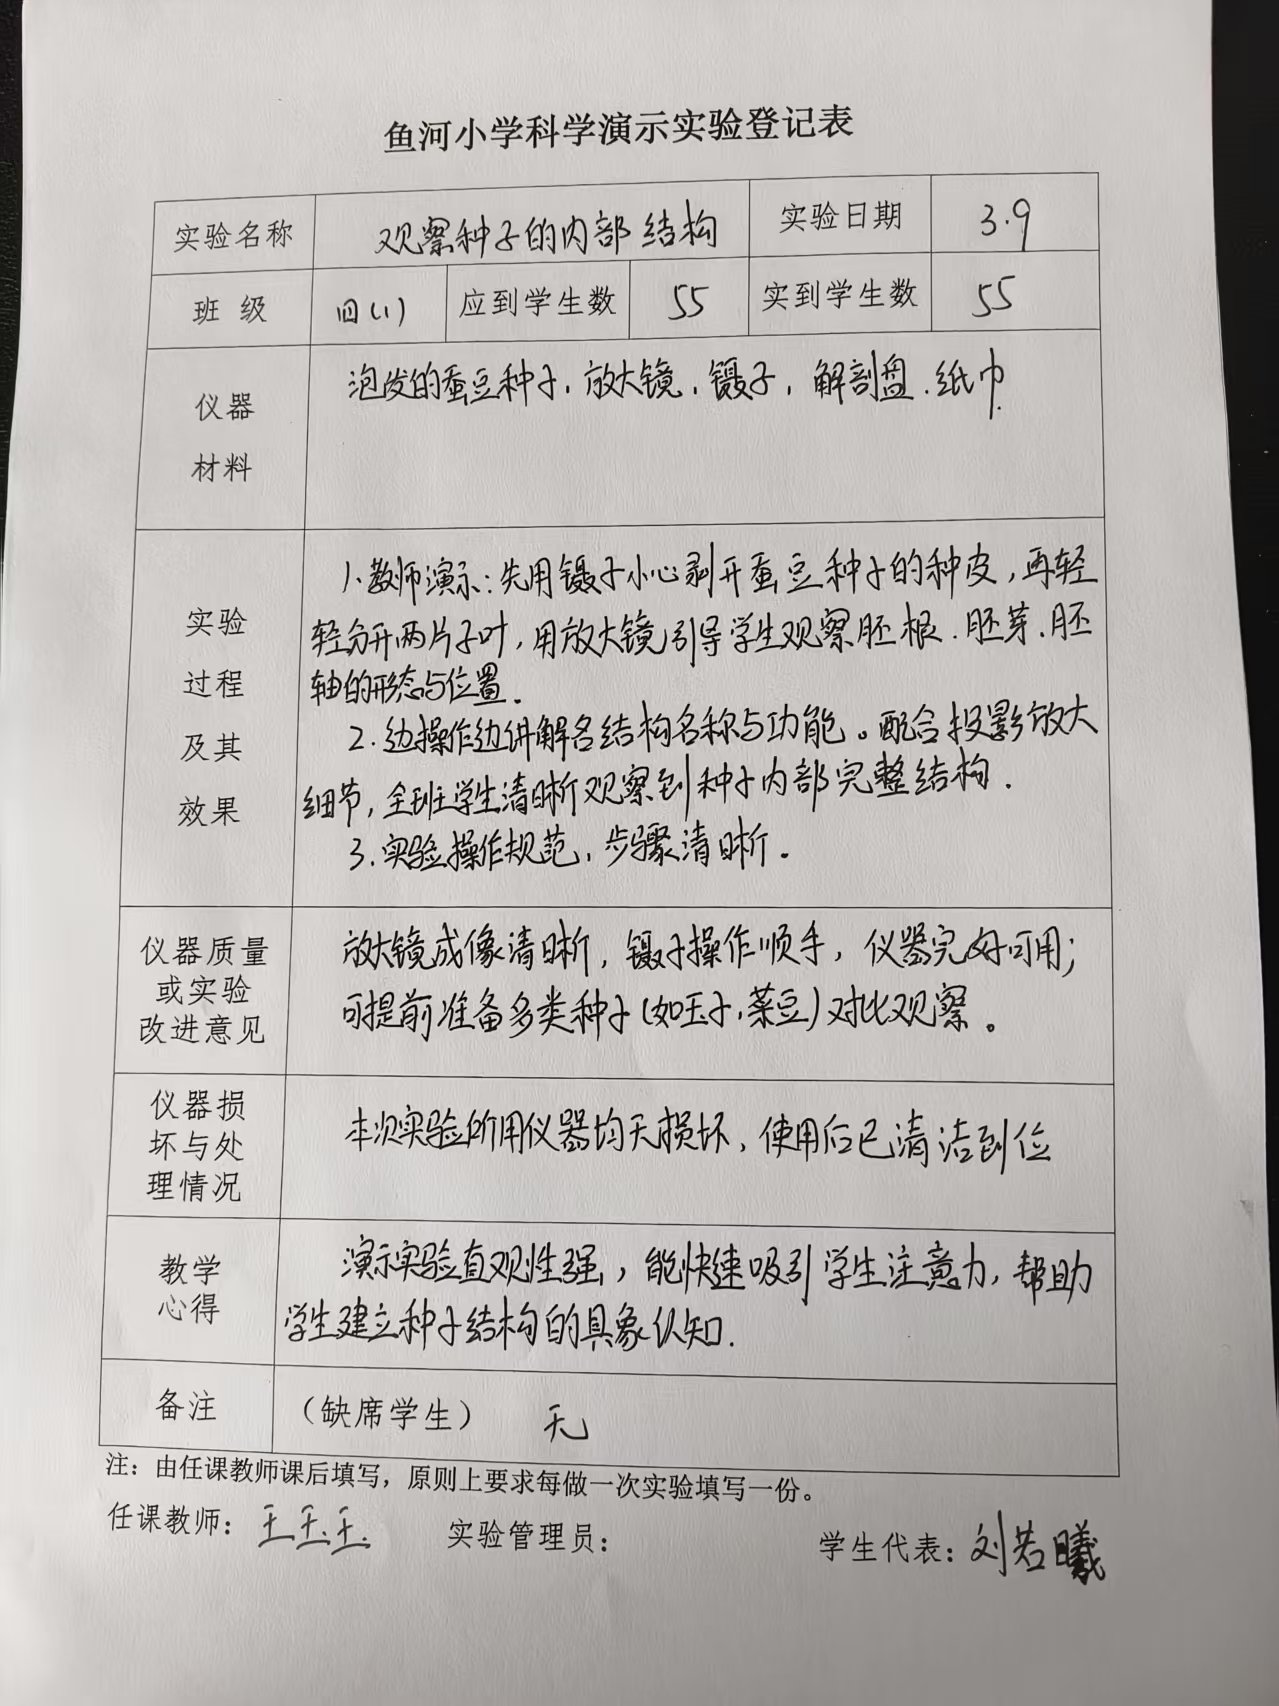 鱼河小学科学演示实验登记表
实验名称 观察种子的内部结构 实验日期 3.9
班级 四(1) 应到学生数 55 实到学生数 55
仪器
材料
泡发的蚕豆种子,放大镜,镊子,解剖盘.纸巾.
实验
过程
及其
效果
1、教师演示:先用镊子小心剥开蚕豆种子的种皮,再轻
轻分开两片子叶,用放大镜引导学生观察胚根.胚芽.胚
轴的形态与位置.
2.边操作边讲解各结构名称与功能。配合投影放大
细节,全班学生清晰观察到种子内部完整结构.
3.实验操作规范,步骤清晰。
仪器质量
或实验
改进意见
放大镜成像清晰,镊子操作顺手,仪器完好可用;
可提前准备多类种子(如玉子,菜豆)对比观察。
仪器损
坏与处
理情况
本次实验所用仪器均无损坏,使用后已清洁到位
教学
心得
演示实验直观性强,能快速吸引学生注意力,帮助
学生建立种子结构的具象认知.
备注 (缺席学生) 无
注:由任课教师课后填写,原则上要求每做一次实验填写一份。
任课教师: 实验管理员: 学生代表:刘若曦